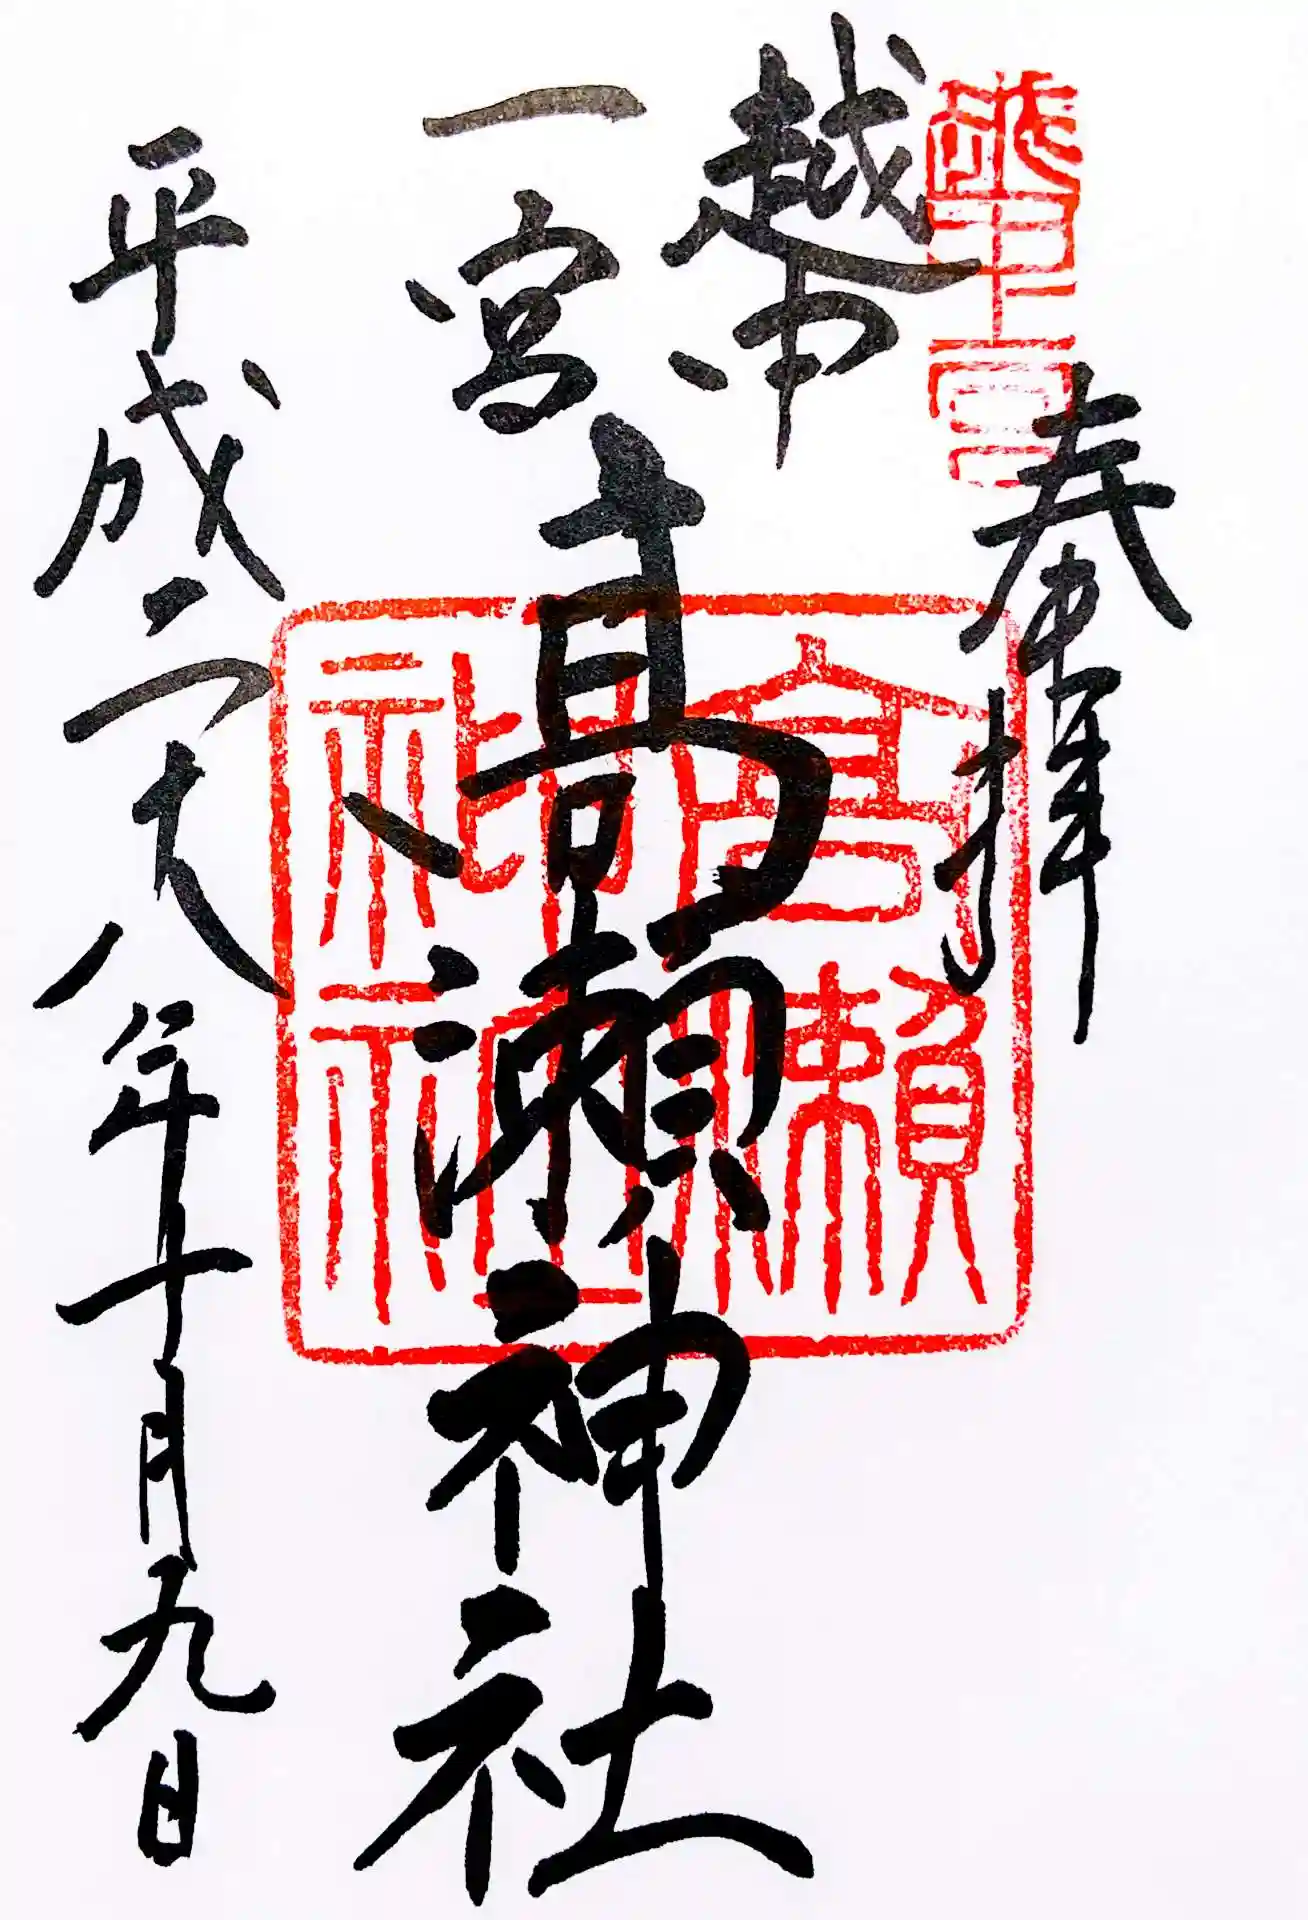 越中一宮
奉拝
越中
一宮
高瀬神社
高瀬
神社
平成二十八年十月九日